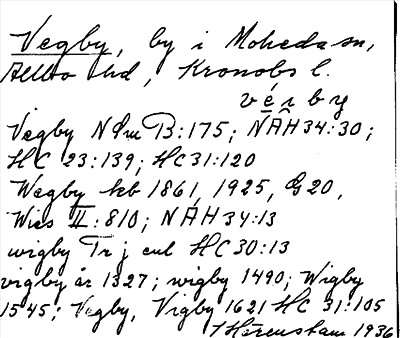 Vegby, by i Moheda sn,
Allbo hd, Kronobs l.
Vegby NSm B:175; NÄH 34:30;
HC 23:139; HC 31:120
Wegby kb 1861, 1925, G 20,
Wies II:810; NÄH 34:13
wigby Tr j enl HC 30:13
vigby år 1327; wigby 1490; Wigby
1545; Vegby, Vigby 1621 HC 31:105
/ Härenstam 1936